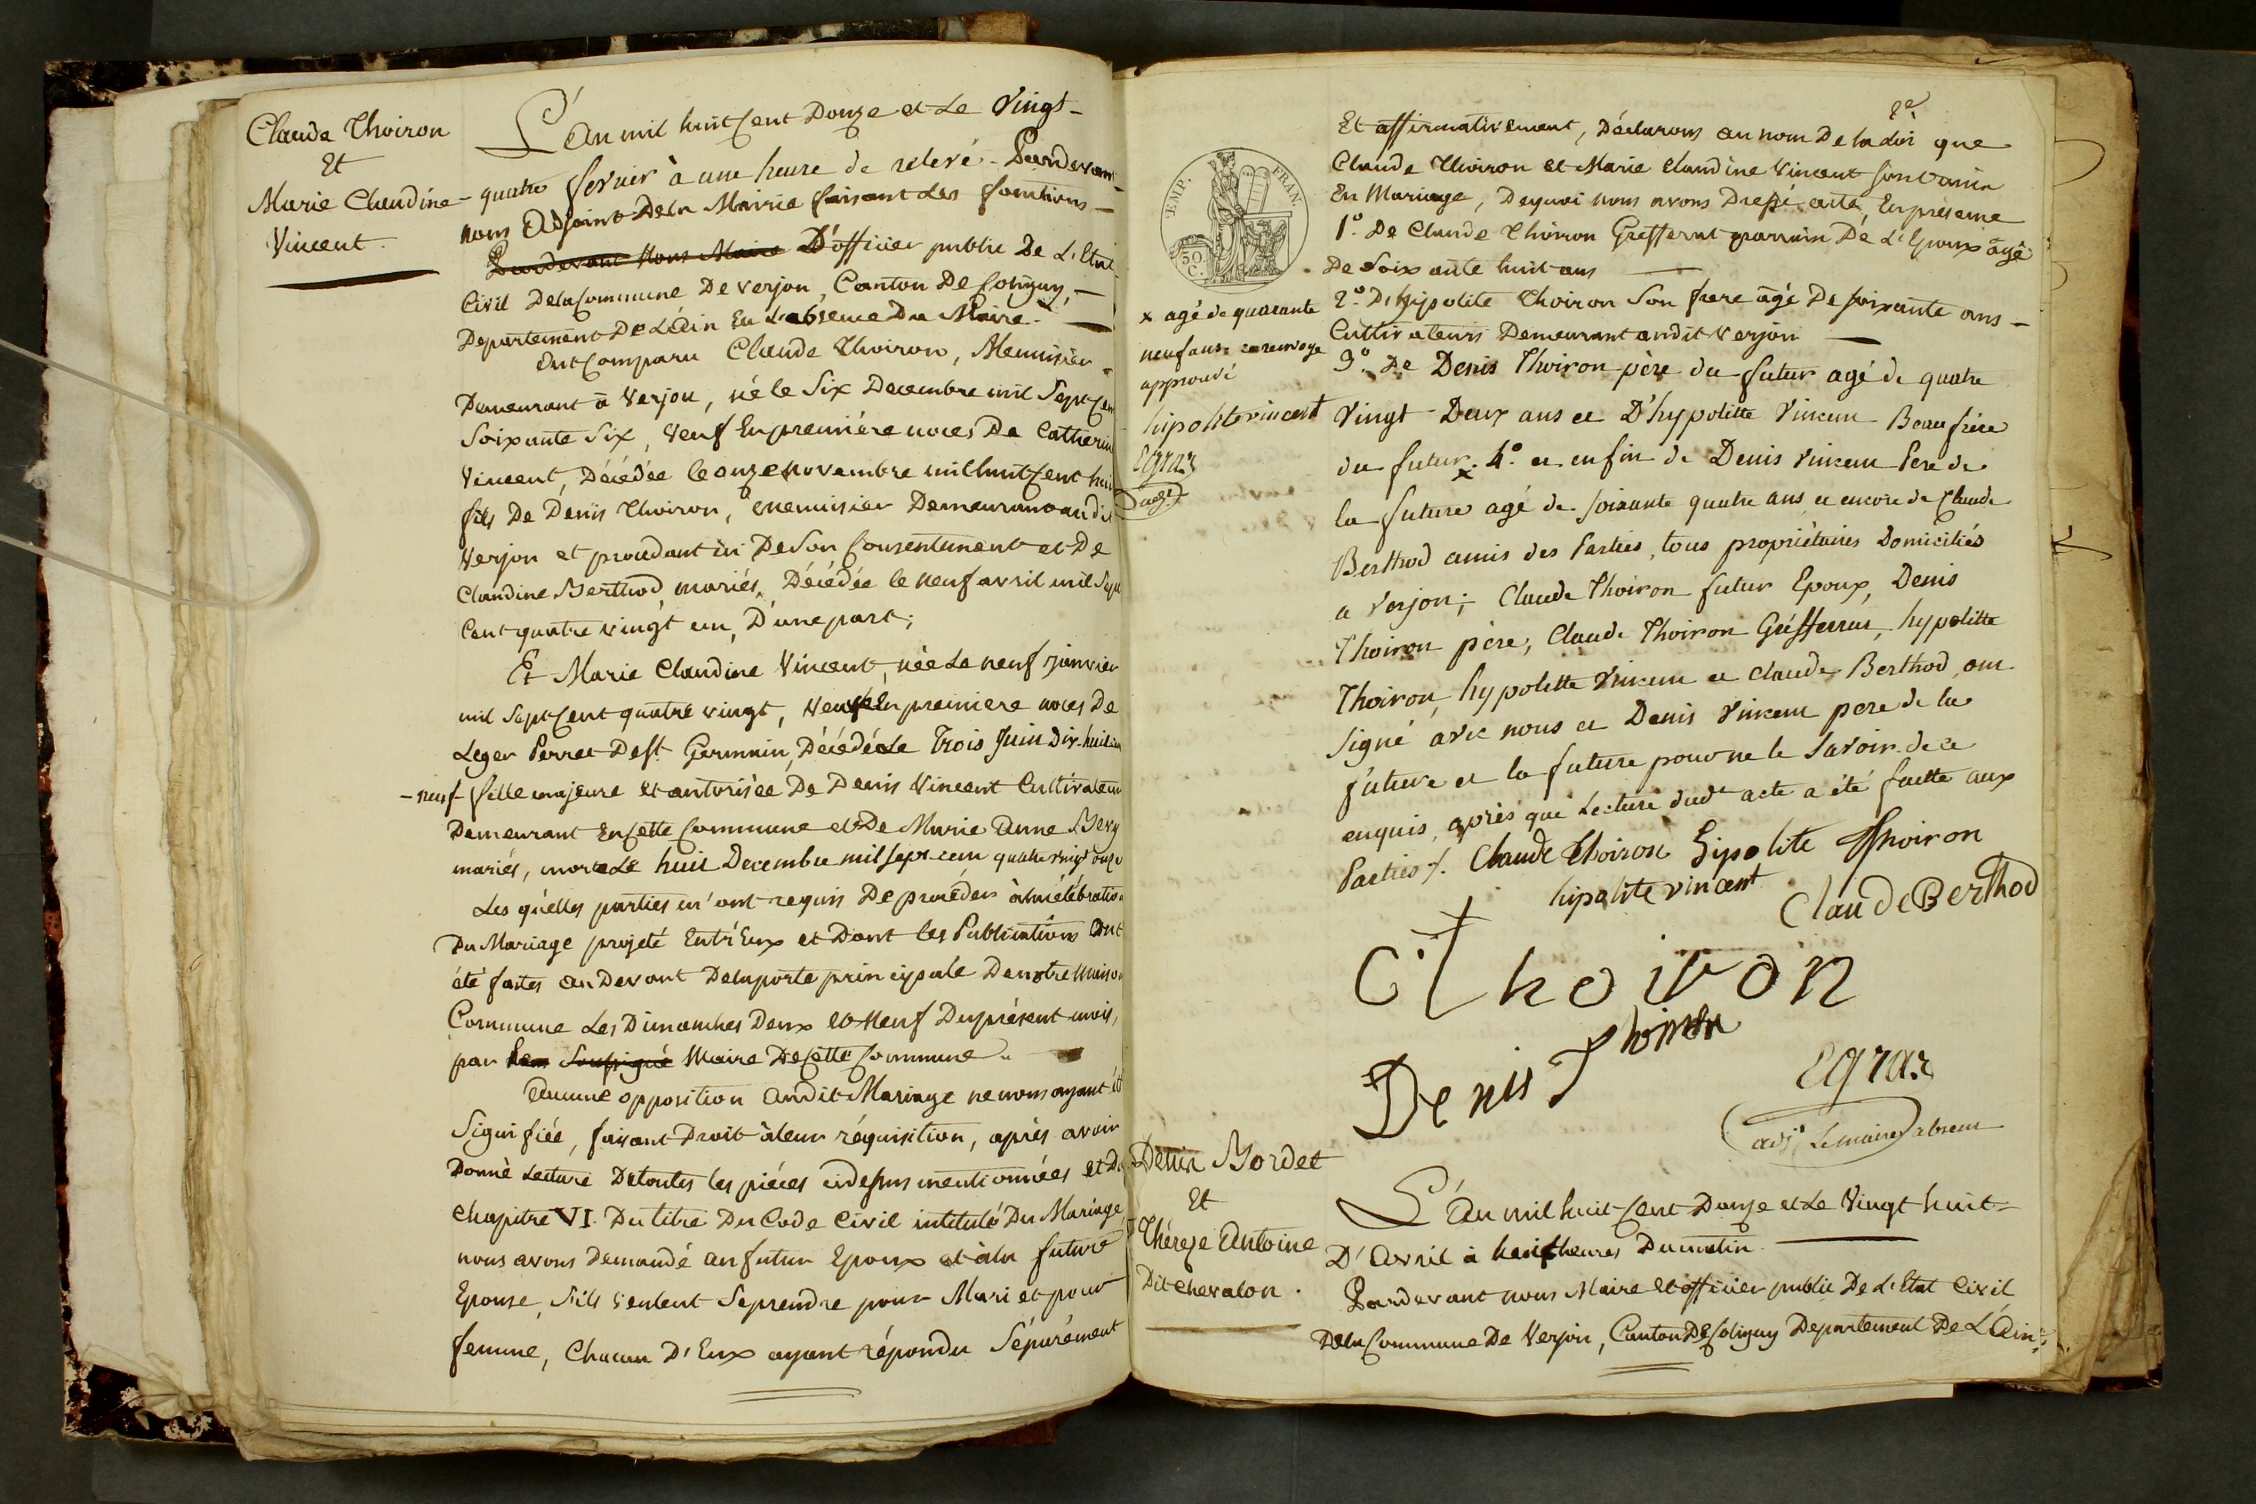 Claude Thoiron
Et
Marie Claudine
Vincent.
L'an mil huit Cent Douze et Le Vingt-
-quatre fevrier à une heure de relevé - Pardevant
nous Adjoint Dela Mairie faisant Les fonctions -
Pardevant Nous Maire D'officier public De L'Etat
Civil Dela Commune De verjon, Canton De Coligny, -
Departement De L'Ain En L'absence Du Maire. -
Ont Comparu Claude Thoiron, Menuisier
Demeurant à Verjon, né le Six Decembre mil Sept Cen
Soixante Six, Veuf En première noces De Catherin
Vincent, Décédée le onze novembre mil huit Cent hui
fils De Denis Thoiron, menuisier Demeurant audit
Verjon et procedant ici De Son Consentement et De
Claudine Berthod mariés, Décédée le neuf avril mil Sept
Cent quatre vingt un, D'une part;
Et Marie Claudine Vincent, née Le neuf janvier
mil Sept Cent quatre vingt, veuve En première noces De
Leger Perret De St Germain, Décédé Le Trois Juin Dix-huit cen
-neuf fille majeure et autorisée De Denis Vincent Cultivateur
Demeurant En Cette Commune et De Marie Anne Bery
mariés, morte Le huit Decembre mil sept cent quatre vingt onze
Les quelles parties m'ont requis De procéder à la célébration
Du Mariage projeté Entr'Eux et Dont les Publications ont
été faites au Devant Dela porte principale De notre maison
Commune Les Dimanches Deux et Neuf Du présent mois,
par Soussigné Maire De Cette Commune. -
Aucune opposition audit Mariage ne nous ayant été
Signifiée, faisant Droit à leur réquisition, après avoir
Donné Lecture De toutes les piéces cidessus mentionnées et Du
Chapitre VI. Du titre Du Code Civil intitulé Du Mariage,
nous avons Demandé au futur Epoux et à la future
Epouse, S'ils veulent Se prendre pour Mari et pour
femme, Chacun D'Eux ayant répondu Séparément
EMP. FRAN.
50 C.
Et affirmativement, Déclarons au nom De la Loi que
Claude Thoiron et Marie Claudine Vincent sont unis
En Mariage, De quoi nous avons Dressé acte, En présence
1°. De Claude Thoiron Grefferat parrain De L'Epoux âgé
De Soixante huit ans
2°. D'hipolite Thoiron Son frere âgé De soixante ans -
Cultivateurs Demeurant audit Verjon -
3°. De Denis Thoiron père du futur agé de quatre
Vingt-Deux ans et D'hypolitte Vincent Beaufrère
du futur. x 4°. et enfin de Denis Vincent Pere de
la future agé de soixante quatre ans et encore de Claude
Berthod amis des Parties, tous propriétaires Domiciliés
a Verjon; Claude Thoiron futur Epoux, Denis
Thoiron père, Claude Thoiron Gréfferat, hypolitte
Thoiron, hypolitte Vincent et Claude Berthod ont
Signé avec nous et Denis Vincent pere de la
future et la future pour ne le Savoir de ce
enquis, après que Lecture dudt acte a été faitte aux
Parties /. Claude Thoiron hipolite Thoiron
hipolite vincent Claude Berthod
C. Thoiron
Denis Thoiron
Egraz
adjt Le maire absent
x agé de quarante
neuf ans renvoye
approuvé
hipolite vincent
Egraz
adjt
Denis Bordet
Et
Thérèze Antoine
Dit Chevalon.
L'An mil huit Cent Douze et Le Vingt huit -
D'Avril à huit heures Du matin
Pardevant nous Maire et officier public De L'Etat Civil
Dela Commune De Verjon, Canton De Coligny Departement De L'Ain,